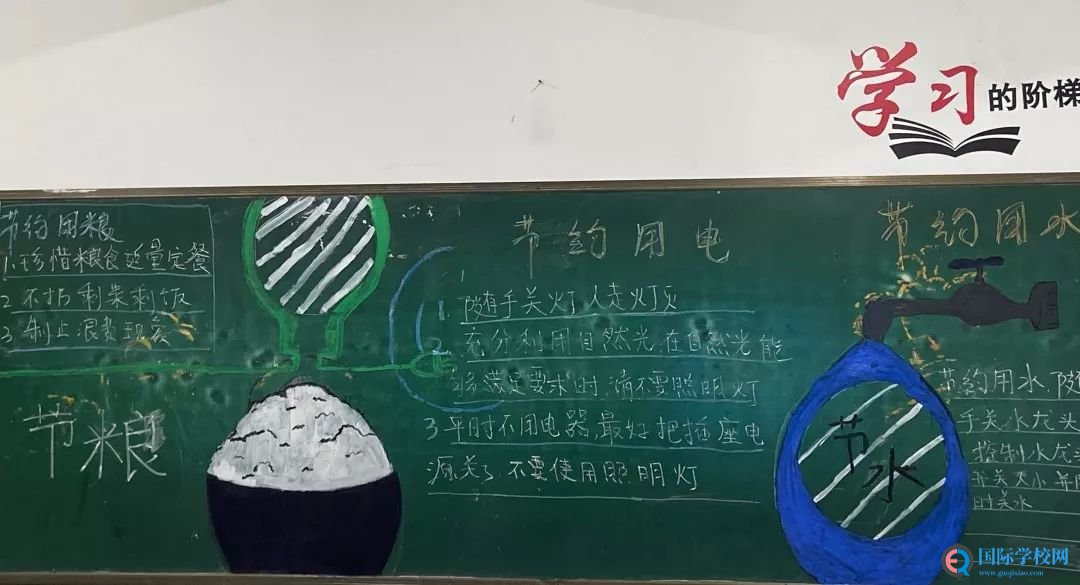 学习的阶梯
节约用粮
1.珍惜粮食适量定餐
2 不扔剩菜剩饭
3 制止浪费现象
节粮
节约用电
1. 随手关灯 人走灯灭
2. 充分利用自然光,在自然光能
够满足要求时,请不要照明灯
3 平时不用电器,最好把插座电
源关了,不要使用照明灯
节约用水
节水
节约用水,随
手关水龙头
控制水龙头
开关大小
时关水
国际学校网
www.guojixiao.com